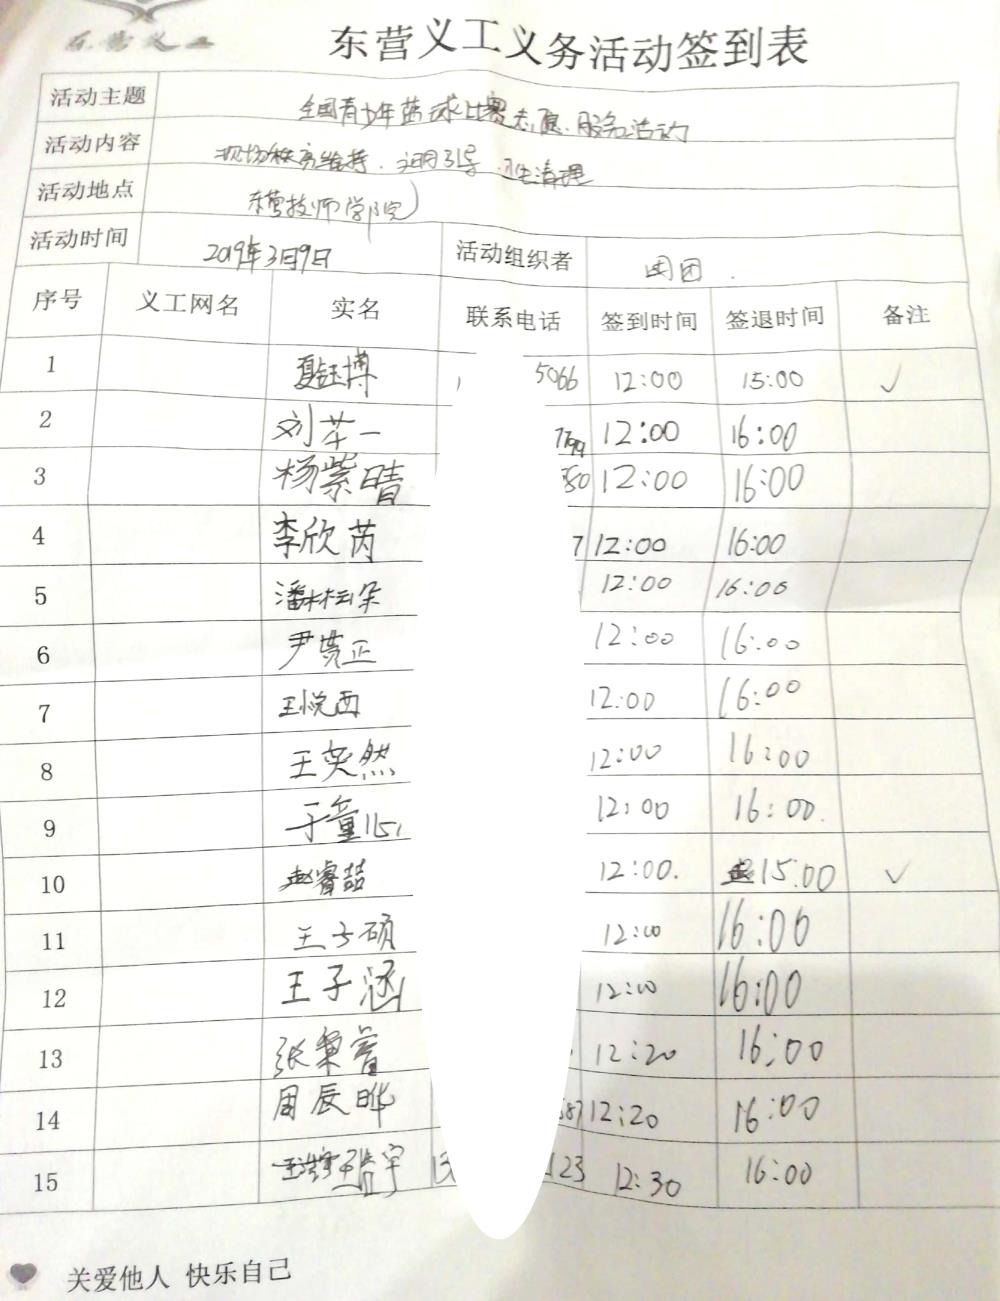 东营义工
东营义工义务活动签到表
活动主题 全国青少年篮球比赛志愿服务活动
活动内容 现场秩序维持、文明引导 卫生清理
活动地点 东营技师学院
活动时间 2019年3月9日 活动组织者 团团.
序号 义工网名 实名 联系电话 签到时间 签退时间 备注
1 夏钰博 5066 12:00 15:00 ✓
2 刘芊一 7799 12:00 16:00
3 杨紫晴 80 12:00 16:00
4 李欣芮 7 12:00 16:00
5 潘林朵 12:00 16:00
6 尹贯正 12:00 16:00
7 王悦西 12:00 16:00
8 王奕然 12:00 16:00
9 于童 12:00 16:00.
10 赵睿喆 12:00. 15:00 ✓
11 王子硕 12:00 16:00
12 王子涵 12:10 16:00
13 张秉睿 12:20 16:00
14 周辰晔 587 12:20 16:00
15 宇 13 123 12:30 16:00
关爱他人 快乐自己